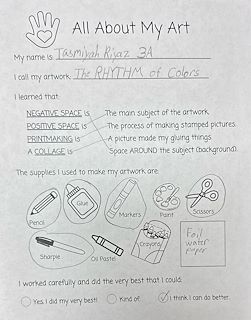 All About My Art
My name is Tasmiyah Riyaz 3A
I call my artwork The RHYTHM of Colors
I learned that:
NEGATIVE SPACE is The main subject of the artwork
POSITIVE SPACE is The process of making stamped pictures.
PRINTMAKING is A picture made my gluing things
A COLLAGE is Space AROUND the subject (background).
The supplies I used to make my artwork are:
Pencil Glue Markers Paint Scissors
Sharpie Oil Pastel Crayons Foil
water
paper
I worked carefully and did the very best that I could:
Yes. I did my very best! Kind of. I think I can do better.